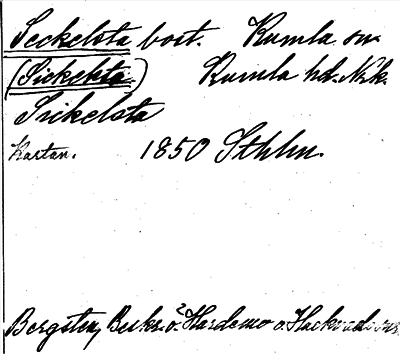 Seckelsta bost. Kumla sn.
(Sickelsta) Kumla hd. Nrk.
Sickelsta
Kartan. 1850 Sthlm.
Bergsten, Beskr. ö. Hardemo o. Hackvad